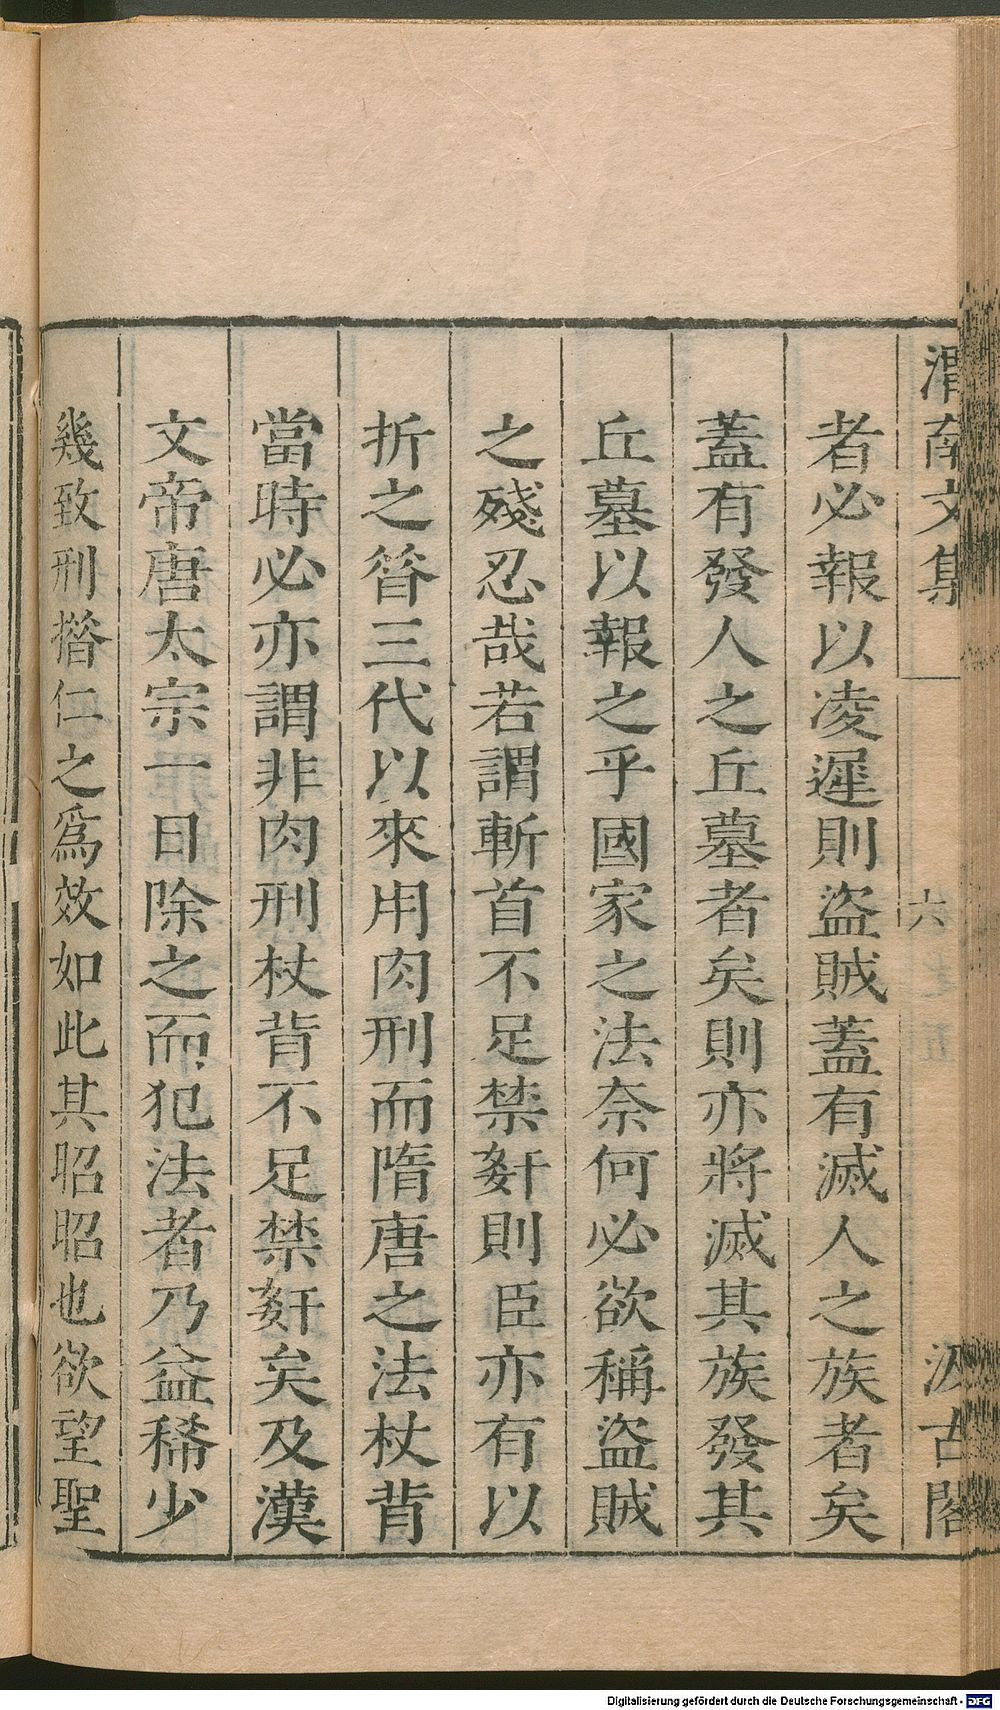 渭南文集 六 汲古閣
者必報以凌遲則盜賊蓋有滅人之族者矣
蓋有發人之丘墓者矣則亦將滅其族發其
丘墓以報之乎國家之法奈何必欲稱盜賊
之殘忍哉若謂斬首不足禁姧則臣亦有以
折之昝三代以來用肉刑而隋唐之法杖背
當時必亦謂非肉刑杖背不足禁姧矣及漢
文帝唐太宗一日除之而犯法者乃益稀少
幾致刑措仁之爲效如此其昭昭也欲望聖
Digitalisierung gefördert durch die Deutsche Forschungsgemeinschaft - DFG